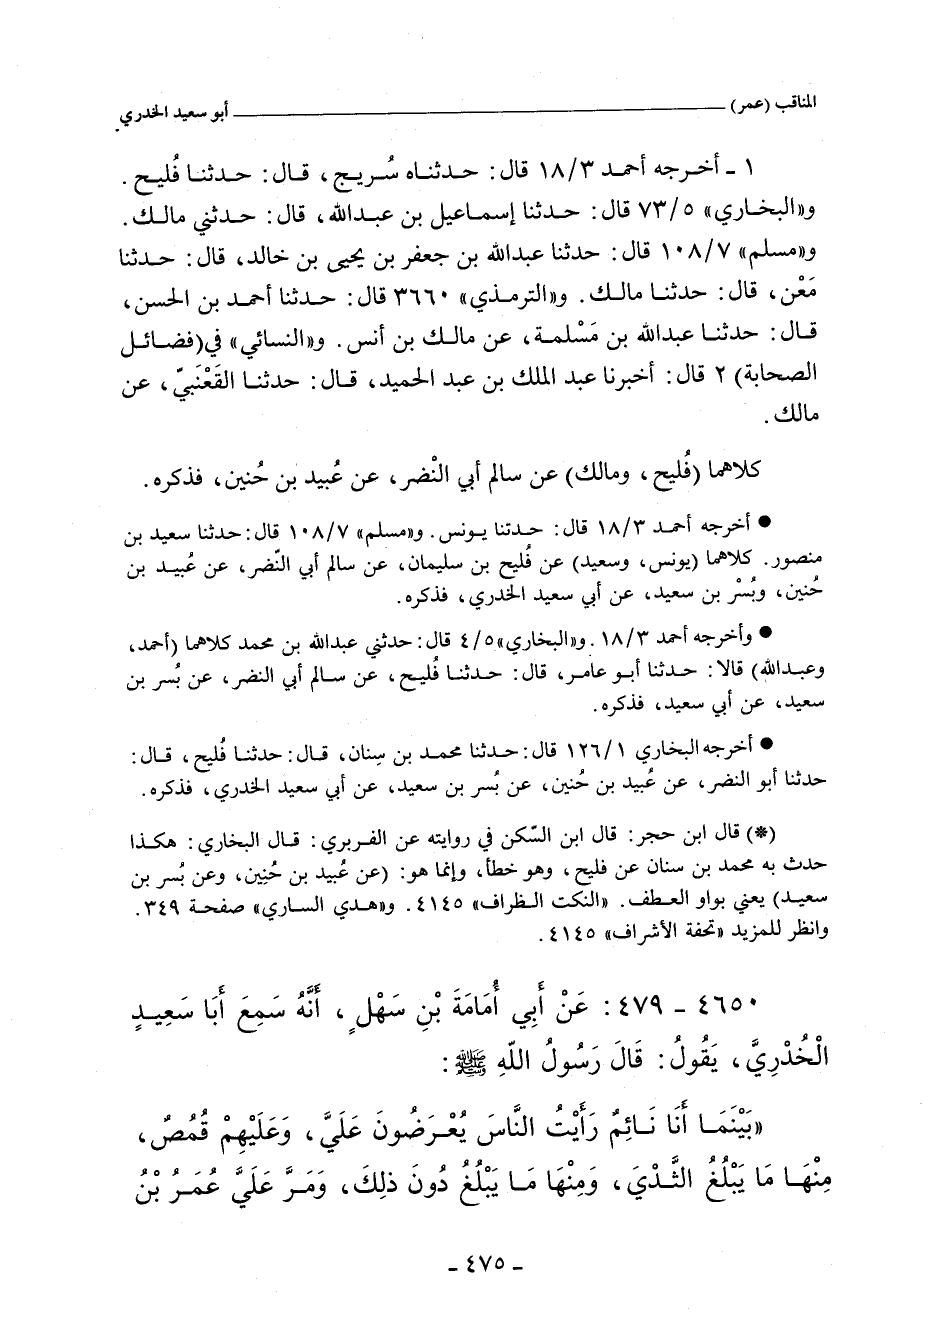 المناقب (عمر) ــــــــــــــــــــــــ أبو سعيد الخدري
١ ـ أخرجه أحمد ١٨/٣ قال: حدثناه سُريج، قال: حدثنا فُليح.
و«البخاري» ٧٣/٥ قال: حدثنا إسماعيل بن عبدالله، قال: حدثني مالك.
و«مسلم» ١٠٨/٧ قال: حدثنا عبدالله بن جعفر بن يحيى بن خالد، قال: حدثنا
مَعْن، قال: حدثنا مالك. و«الترمذي» ٣٦٦٠ قال: حدثنا أحمد بن الحسن،
قال: حدثنا عبدالله بن مَسْلمة، عن مالك بن أنس. و«النسائي» في(فضائل
الصحابة) ٢ قال: أخبرنا عبد الملك بن عبد الحميد، قال: حدثنا القَعْنَبيّ، عن
مالك.
كلاهما (فُليح، ومالك) عن سالم أبي النْضر، عن عُبيد بن حُنين، فذكره.
● أخرجه أحمد ١٨/٣ قال: حدثنا يونس. و«مسلم» ١٠٨/٧ قال: حدثنا سعيد بن
منصور. كلاهما (يونس، وسعيد) عن فُليح بن سليمان، عن سالم أبي النّضر، عن عُبيد بن
حُنين، وبُسْر بن سعيد، عن أبي سعيد الخدري، فذكره.
● وأخرجه أحمد ١٨/٣. و«البخاري»٤/٥ قال: حدثني عبدالله بن محمد كلاهما (أحمد،
وعبدالله) قالا: حدثنا أبو عامر، قال: حدثنا فُليح، عن سالم أبي النضر، عن بُسر بن
سعيد، عن أبي سعيد، فذكره.
● أخرجه البخاري ١٢٦/١ قال: حدثنا محمد بن سِنان، قال: حدثنا فُليح، قال:
حدثنا أبو النضر، عن عُبيد بن حُنين، عن بُسر بن سعيد، عن أبي سعيد الخدري، فذكره.
(*) قال ابن حجر: قال ابن السّكن في روايته عن الفربري: قال البخاري: هكذا
حدث به محمد بن سنان عن فليح، وهو خطأ، وإنما هو: (عن عُبيد بن حُنين، وعن بُسر بن
سعيد) يعني بواو العطف. «النكت الظراف» ٤١٤٥. و«هدي الساري» صفحة ٣٤٩.
وانظر للمزيد «تحفة الأشراف» ٤١٤٥.
٤٦٥٠ ـ ٤٧٩: عَنْ أَبِي أُمَامَةَ بْنِ سَهْلٍ، أَنَّهُ سَمِعَ أَبَا سَعِيدٍ
الْخُدْرِيَّ، يَقُولُ: قَالَ رَسُولُ اللّهِ ﷺ:
«بَيْنَمَا أَنَا نَائِمٌ رَأَيْتُ النَّاسَ يُعْرَضُونَ عَلَيَّ، وَعَلَيْهِمْ قُمُصٌ،
مِنْهَا مَا يَبْلُغُ الثَّدْيَ، وَمِنْهَا مَا يَبْلُغُ دُونَ ذلِكَ، وَمَرَّ عَلَيَّ عُمَرُ بْنُ
ـ ٤٧٥ ـ